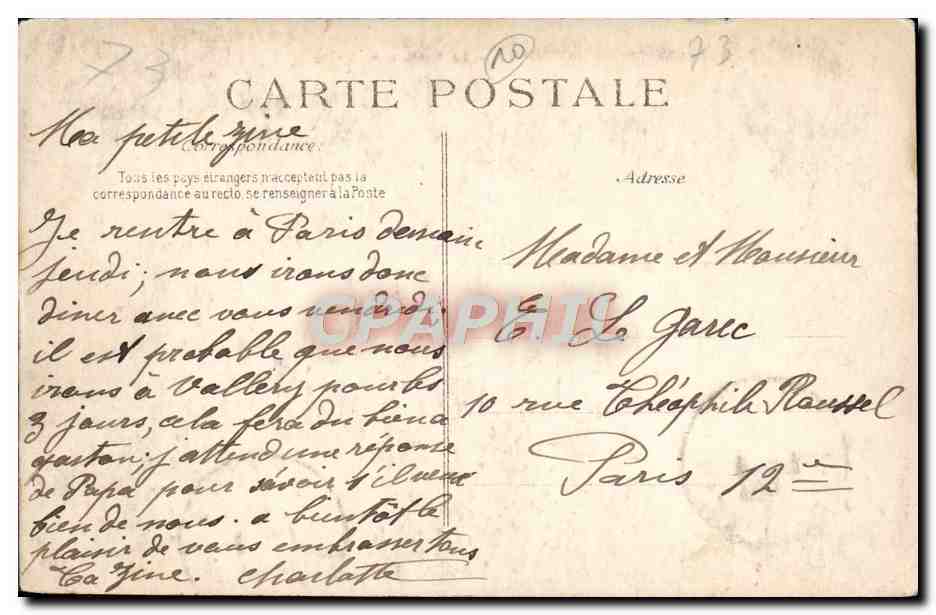 73
20
73
CARTE POSTALE
Ma petite Zine
Correspondance:
Tous les pays étrangers n'acceptent pas la
correspondance au recto, se renseigner à la Poste
Je rentre à Paris demain
jeudi; nous irons donc
diner avec vous vendredi.
il est probable que nous
irons à Vallery pour les
3 jours, cela fera du bien a
gaston; j'attend une réponse
de Papa pour savoir s'il veut
bien de nous. a bientôt le
plaisir de vous embrasser tous
Ta Zine. Charlotte
Adresse
Madame et Monsieur
E Le Garec
10 rue Théophile Roussel
Paris 12e
CPAPHIL